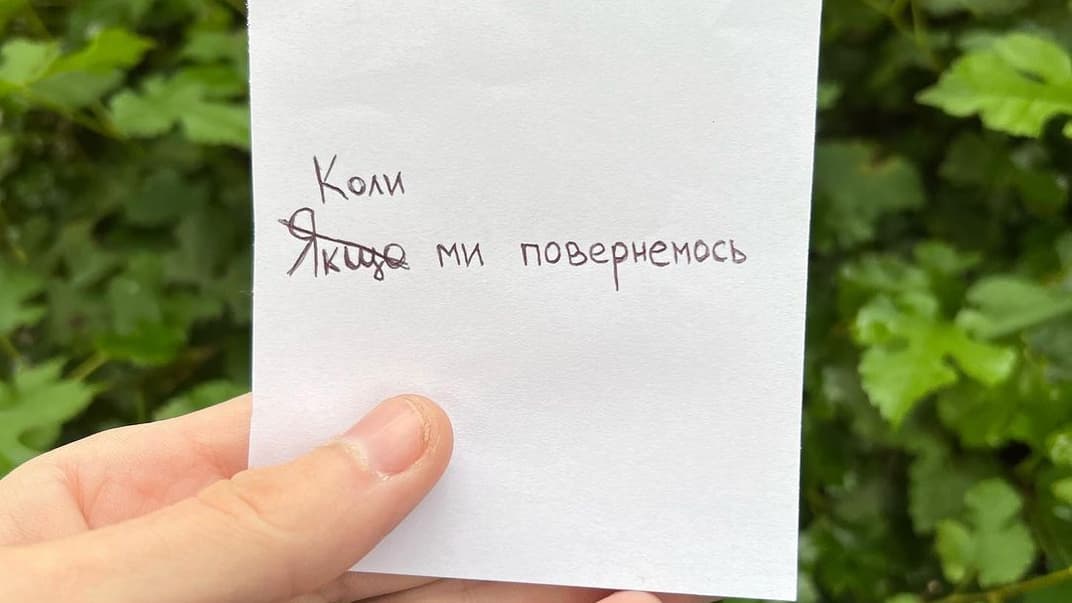 Коли
Якщо ми повернемось